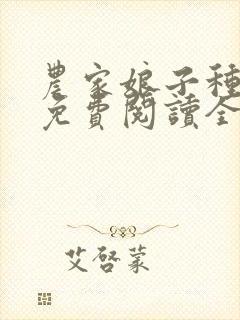 農家娘子種
免費閱讀全
艾啓蒙